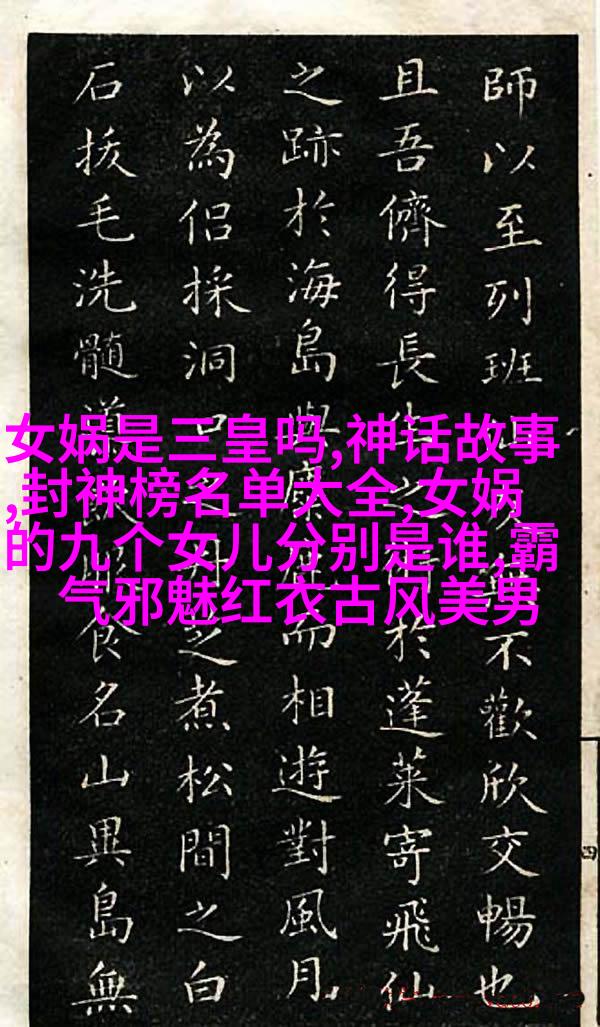 師以至列班無不歡欣交暢也
且吾儕得長生之術於蓬萊寄飛仙
之跡於海島與而相遊對風月
以為侶採洞口之煮松間之白
石拔毛洗髓道食名山異島無
女娲是三皇吗,神话故事
,封神榜名单大全,女娲
的九个女儿分别是谁,霸
气邪魅红衣古风美男